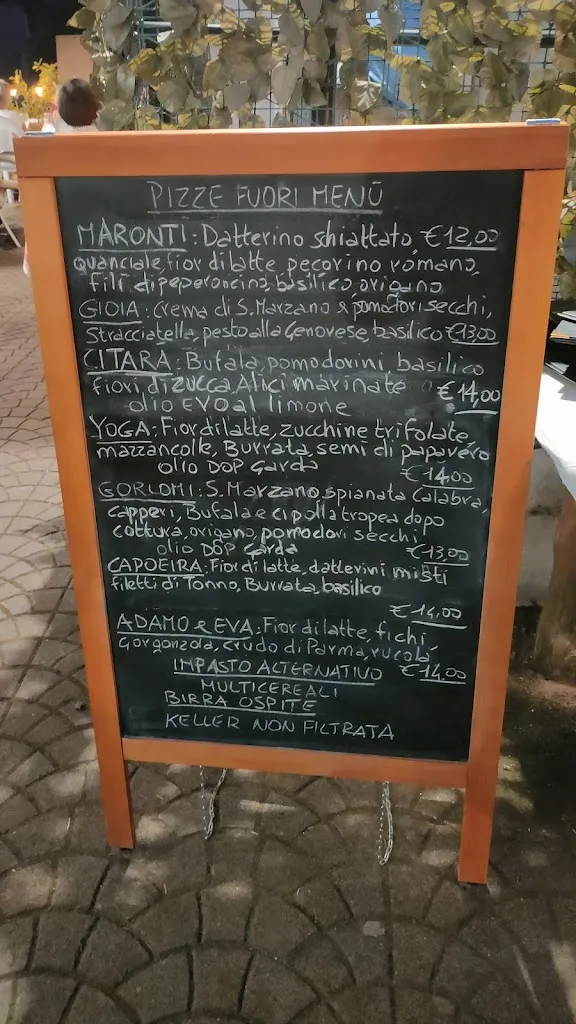 PIZZE FUORI MENÙ
MARONTI: Datterino schiattato, €12,00
guanciale, fior di latte pecorino romano,
fili di peperoncino, basilico, origano
GIOIA: crema di S. Marzano e pomodori secchi,
Stracciatella, pesto alla Genovese, basilico €13,00
CITARA: Bufala, pomodorini, basilico
fiori di zucca, Alici marinate €14,00
olio EVO al limone
YOGA: Fior di latte, zucchine trifolate,
mazzancolle, Burrata, semi di papavero
olio DOP Garda €14,00
GORLOMI: S. Marzano, spianata Calabra,
capperi, Bufala e cipolla tropea dopo
cottura, origano, pomodori secchi
olio DOP Garda €13,00
CAPOEIRA: Fior di latte, datterini misti
filetti di Tonno, Burrata, basilico
€14,00
ADAMO e EVA: Fior di latte, fichi,
Gorgonzola, crudo di Parma, rucola €14,00
IMPASTO ALTERNATIVO
MULTICEREALI
BIRRA OSPITE
KELLER NON FILTRATA